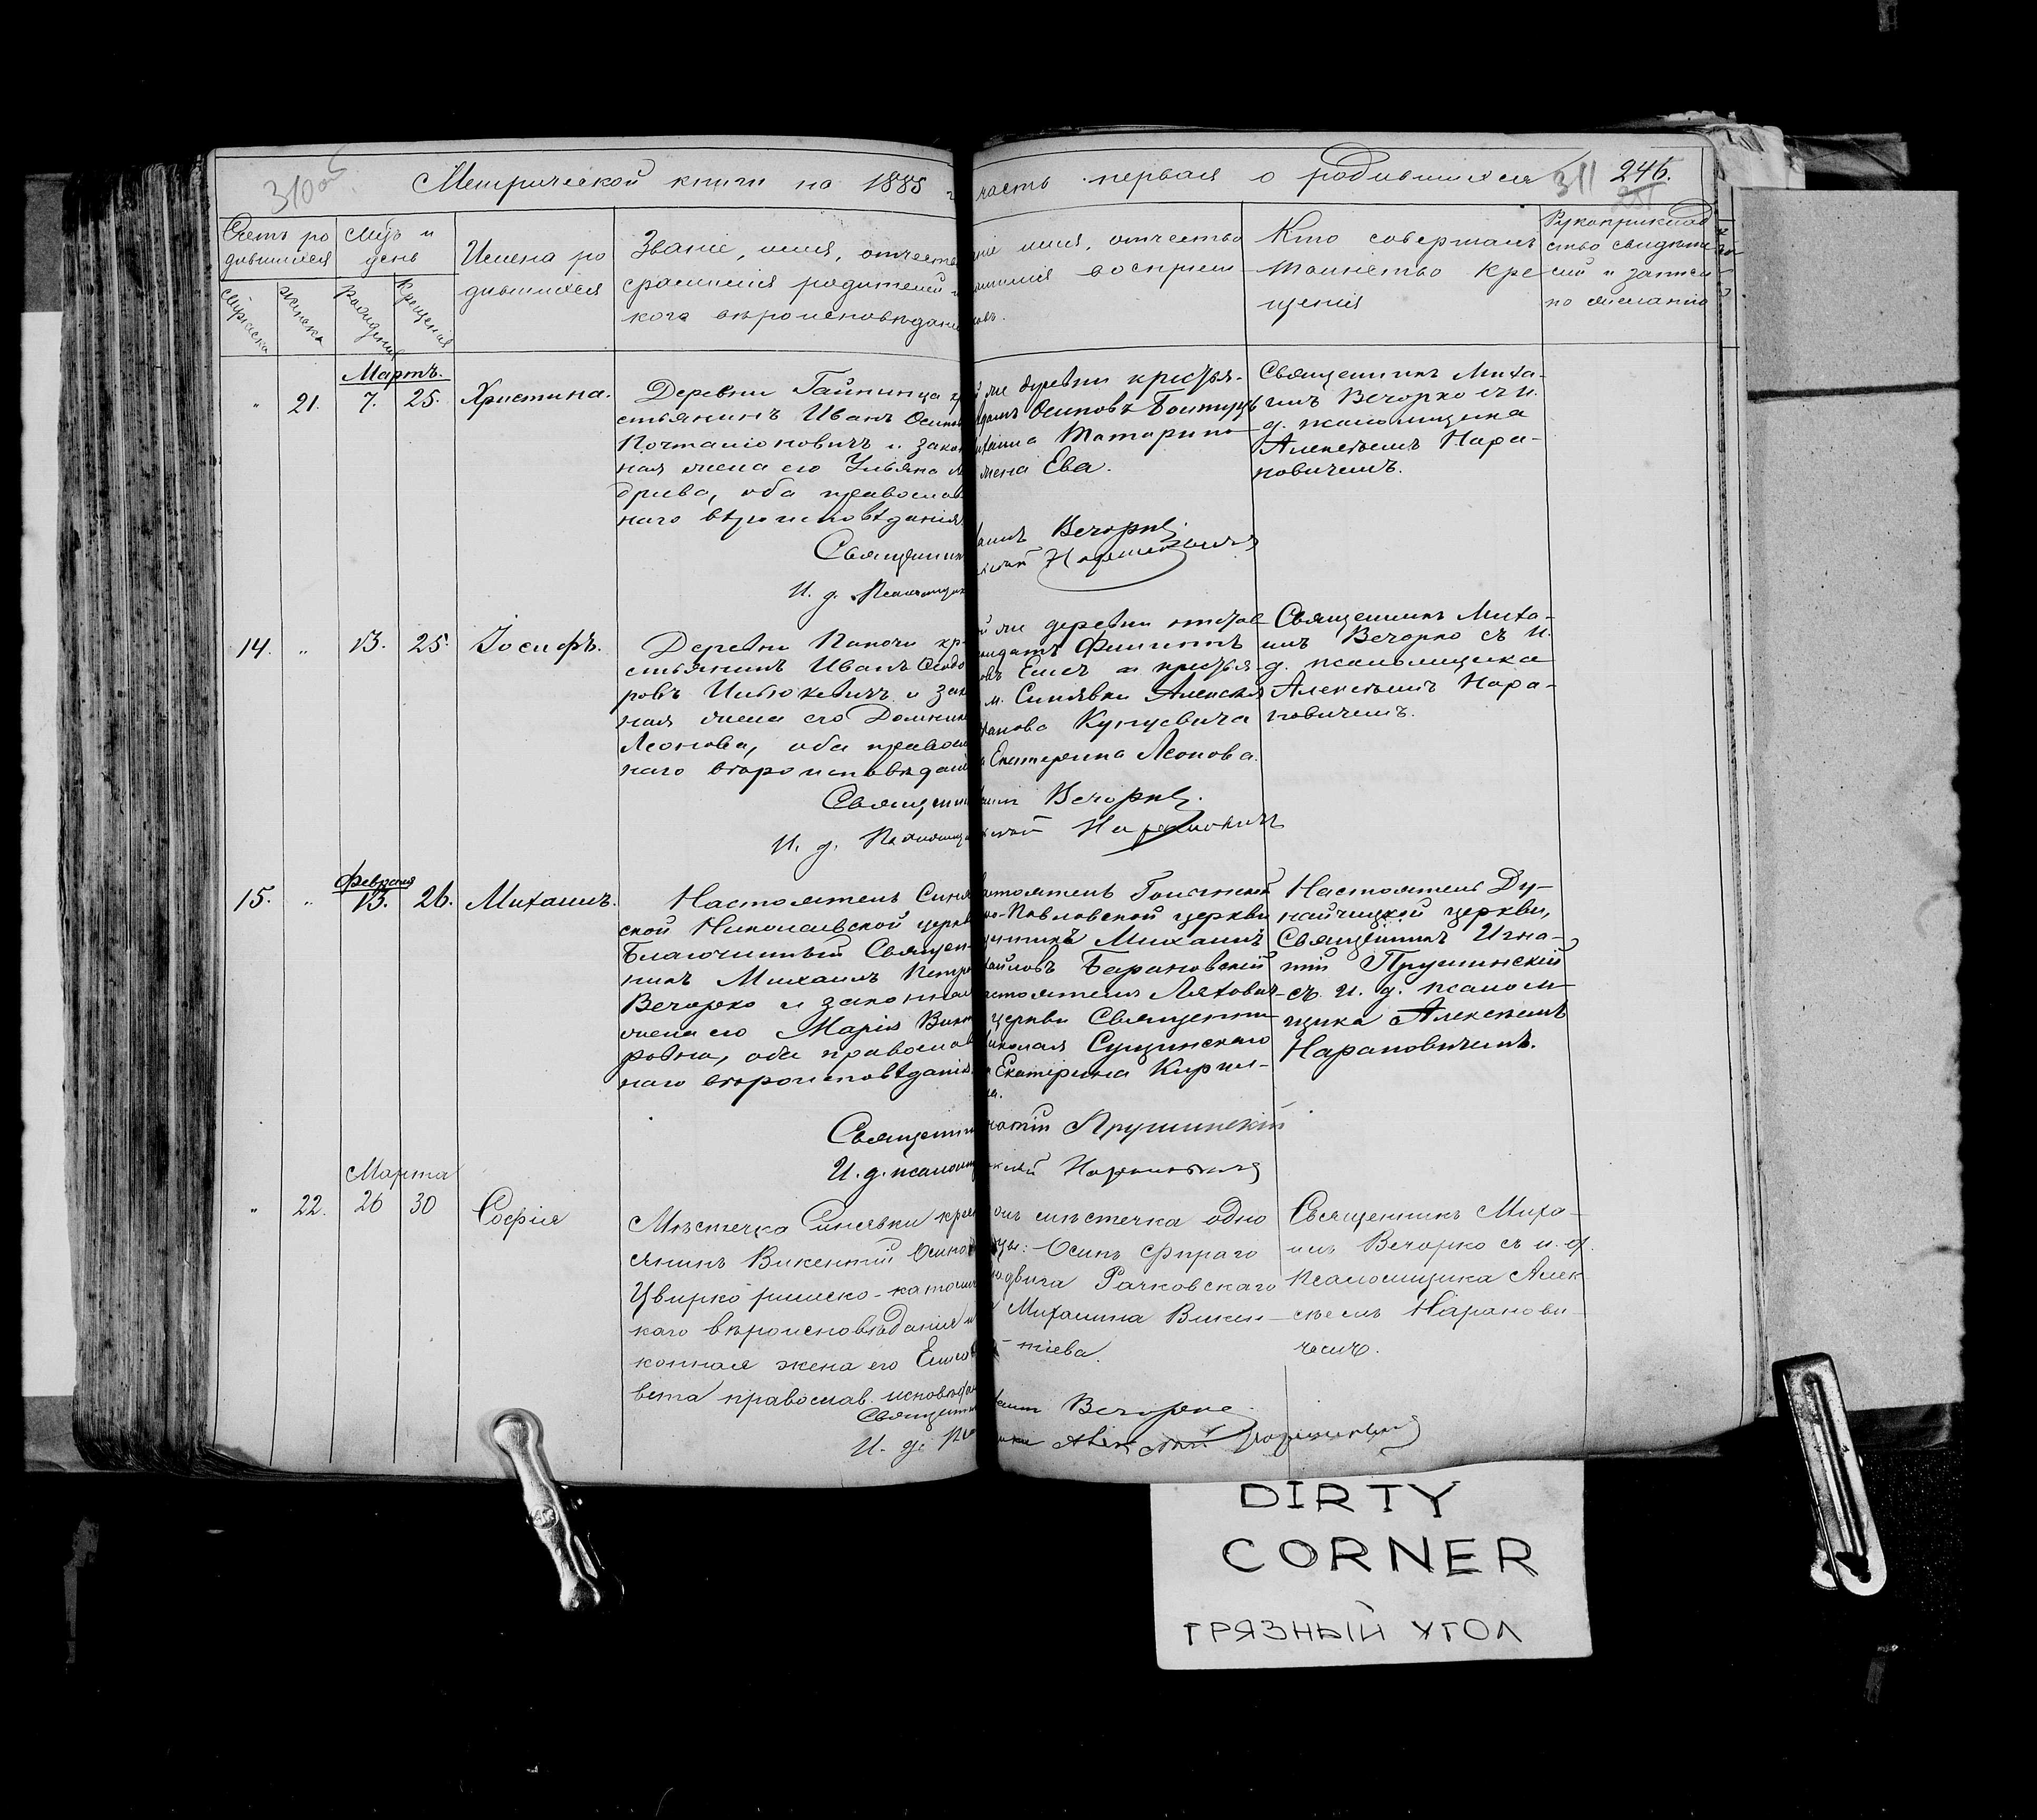 310 об
Метрической книги на 1885 г часть первая о родившихся
311 246.
Счетъ ро
дившихся
Мцъ и
день
Мужска
Женска
Рожденія
Крещенія
Имена ро
дившихся
Званіе, имя, отчество
фамилія родителей и
кого вѣроисповѣданія
имя, отчество
фамилія воспріем
ковъ.
Кто совершалъ
таинство кре
щенія
Рукоприклад
ство свидѣте
лей и записи
по желанію
Мартъ.
" 21. 7. 25. Христина.
Деревни
стьянинъ Иванъ Осипо
Почталіоновичъ и закон
ная жена его Ульяна
оба православ
наго вѣроисповѣданія
же деревни крестья-
Осиповъ
жена Ева.
Священникъ Миха-
илъ Вечорко съ и.
д. псаломщика
Алексѣемъ Нара-
новичемъ.
Священник
аилъ Вечорко
И. д. Псаломщик
14. " 13. 25. Іосифъ.
Деревни кр
стьянинъ Иванъ Ѳеодо
ровъ и зак
ная жена его Домник
Леонова, оба правосл
наго вѣроисповѣдані
же деревни
Филиппъ
м. Синявки Алексѣя
Екатерина Леонова.
Священникъ Миха-
илъ Вечорко съ и.
д. псаломщика
Алексѣемъ Нара-
новичемъ.
Священни
аилъ Вечорко
И. д. Псаломщи
ксѣй Наранович
Февраля
15. " 13. 26. Михаилъ.
Настоятель Синя
ской Николаевской церкв
Благочинный Священ-
никъ Михаилъ Петро
Вечорко и законная
жена его Марія Викт
ровна, оба православ
наго вѣроисповѣданія.
астоятель
о-Павловской церкви
щенникъ Михаилъ
хайловъ Барановскій
астоятеля Ляхович-
церкви Священни
иколая Сущинскаго
Екатерина Кирил-
на.
Настоятель Ду-
найчицкой церкви,
Священникъ Игна-
тій Прушинскій
съ и. д. псалом-
щика Алексѣемъ
Нарановичемъ.
Священни
натій Прушинскій
И. д. псаломщ
ксѣй
Марта
" 22. 26 30 Софія
Мѣстечка Синявки крес
янинъ Викентій Осипо
Цвирко римско-католи
каго вѣроисповѣданія и
конная жена его Елиса
вета православ. исповѣдан
омъ мѣстечка одно
цы: Осипъ
юдвига Рачковскаго
Михалина Викен-
тіева.
Священникъ Миха-
илъ Вечорко съ и. д.
псаломщика Алек
сѣемъ Наранови-
чемъ.
Священни
хаил Вечорко
И. д. Пса
DIRTY
CORNER
ГРЯЗНЫЙ УГОЛ